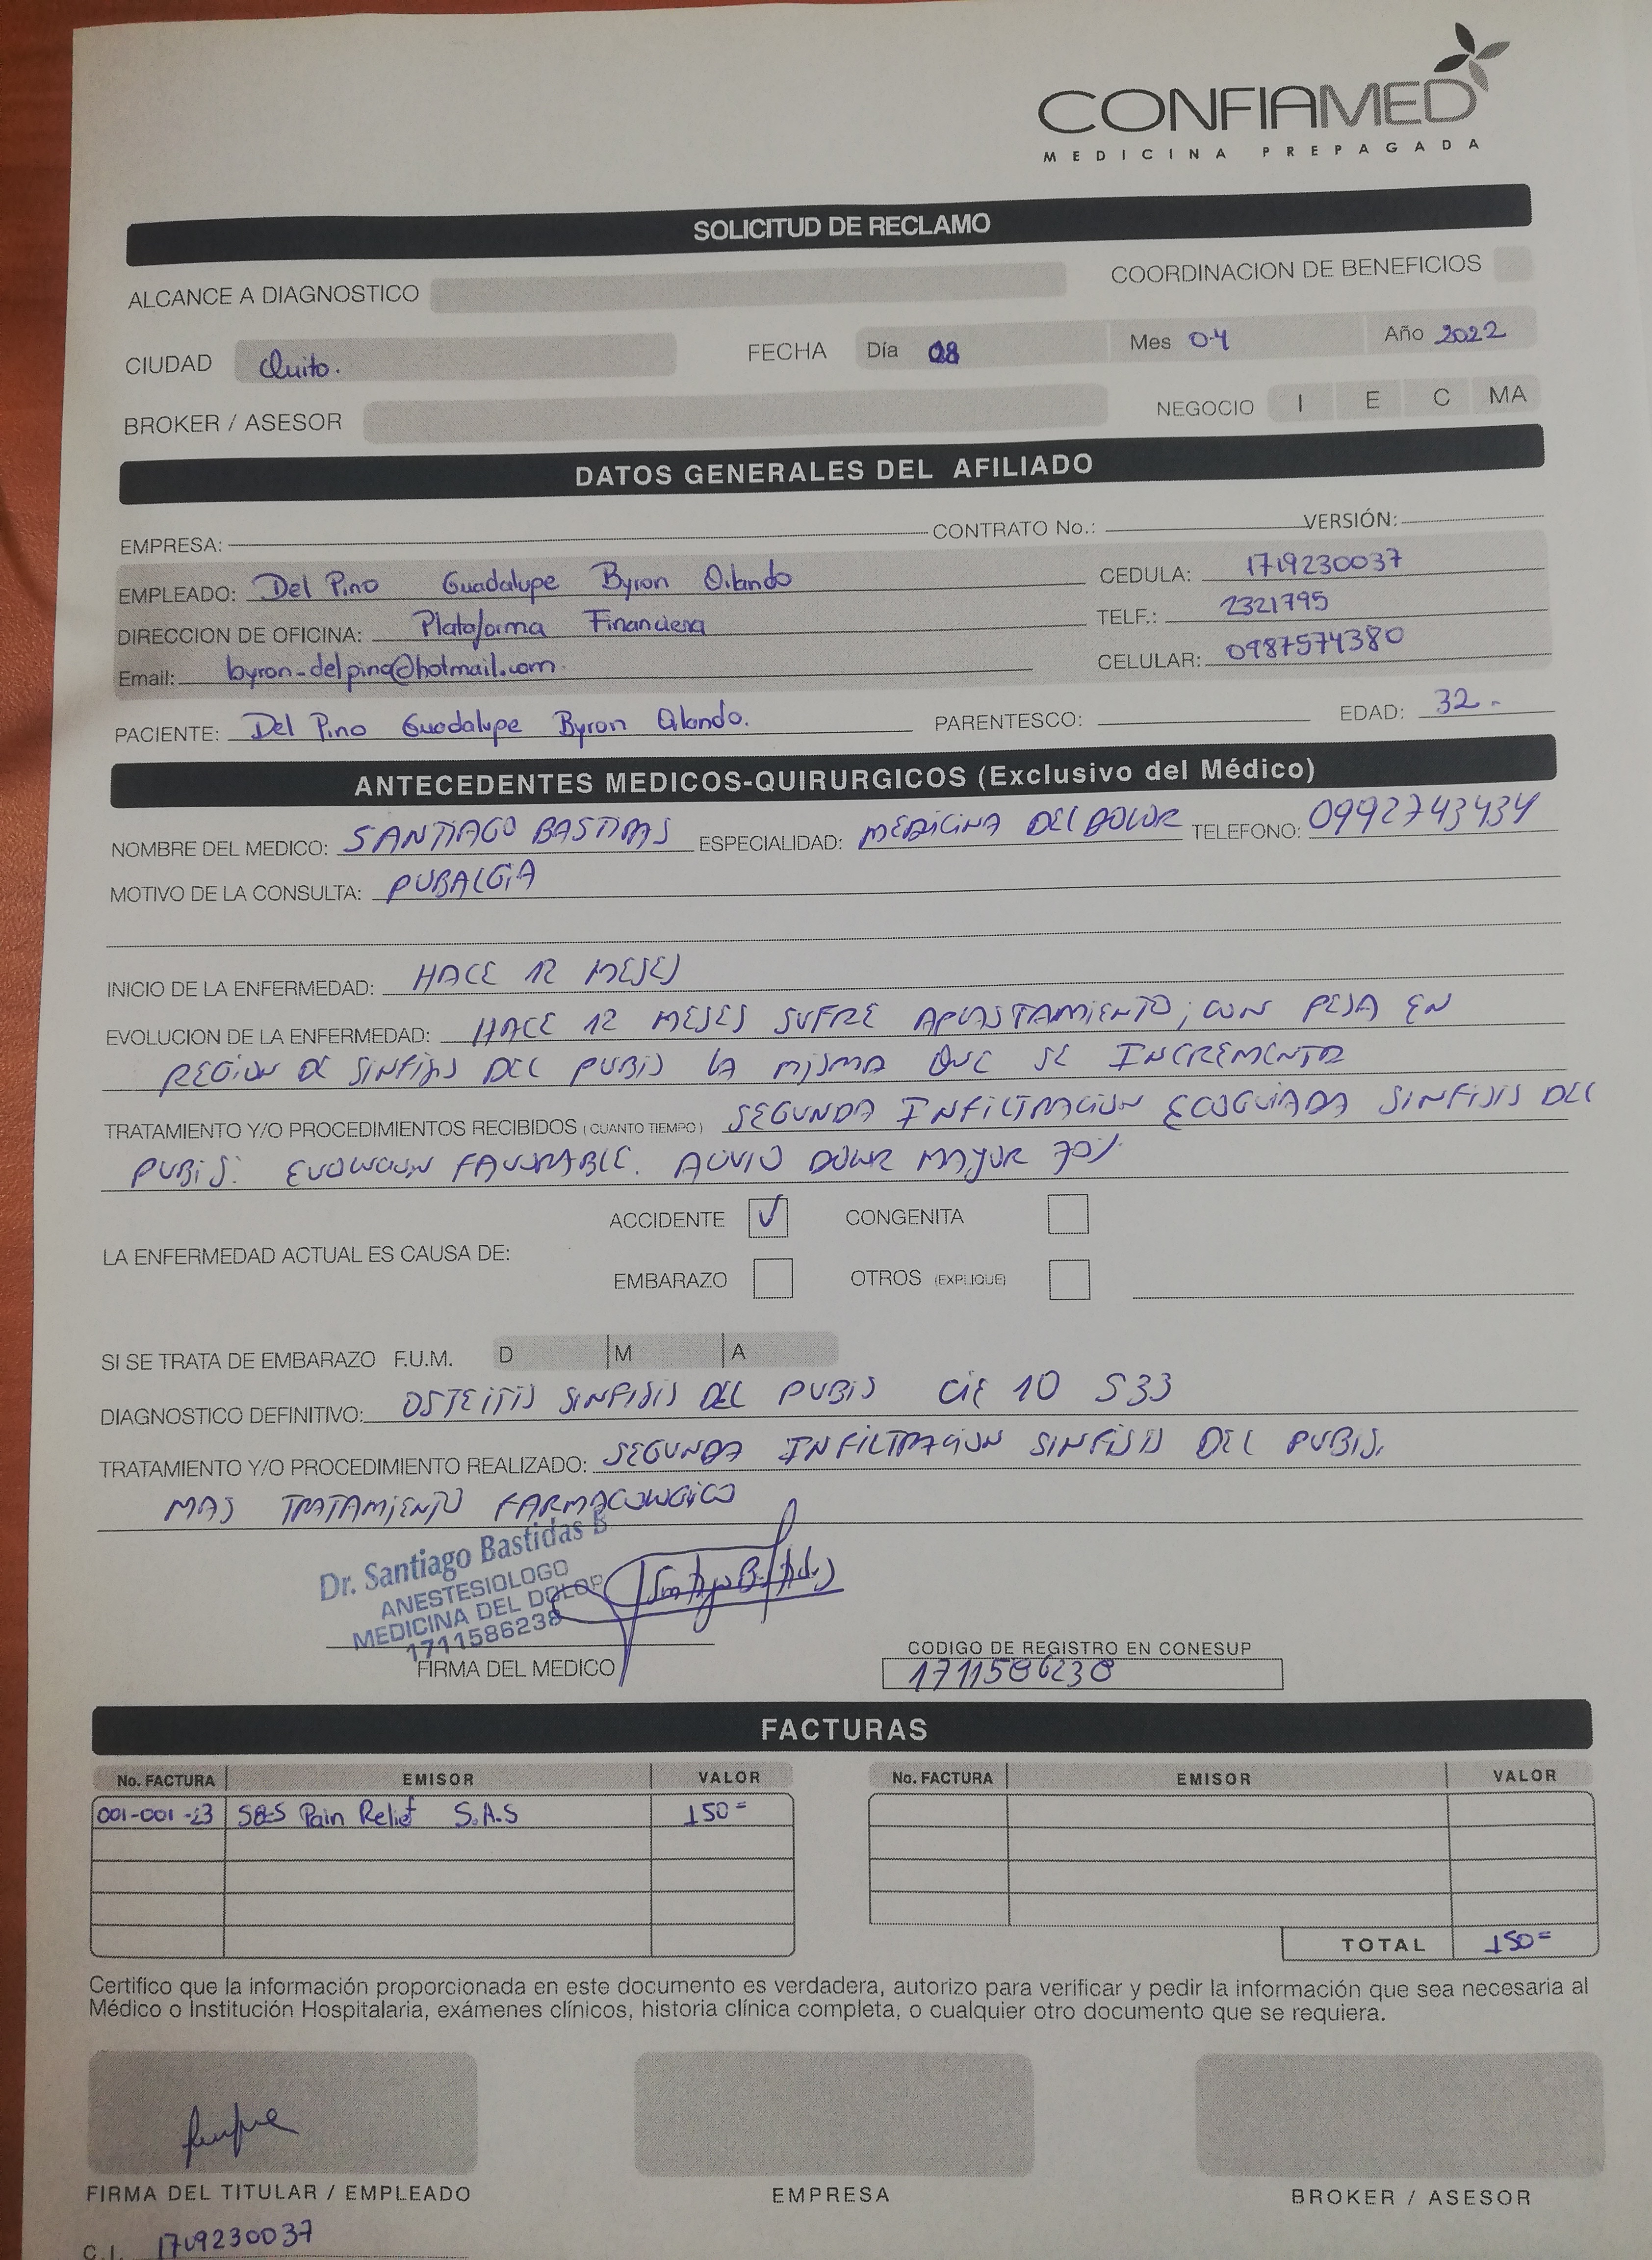 CONFIAMED
MEDICINA PREPAGADA
SOLICITUD DE RECLAMO
ALCANCE A DIAGNOSTICO COORDINACION DE BENEFICIOS
CIUDAD Quito. FECHA Día 08 Mes 04 Año 2022
BROKER / ASESOR NEGOCIO I E C MA
DATOS GENERALES DEL AFILIADO
EMPRESA: CONTRATO No.: VERSIÓN:
EMPLEADO: Del Pino Guadalupe Byron Orlando CEDULA: 1719230037
DIRECCION DE OFICINA: Plataforma Financiera TELF.: 2321795
Email: byron-delpino@hotmail.com CELULAR: 0987574380
PACIENTE: Del Pino Guadalupe Byron Orlando. PARENTESCO: EDAD: 32.
ANTECEDENTES MEDICOS-QUIRURGICOS (Exclusivo del Médico)
NOMBRE DEL MEDICO: SANTIAGO BASTIDAS ESPECIALIDAD: MEDICINA DEL DOLOR TELEFONO: 0992743434
MOTIVO DE LA CONSULTA: PUBALGIA
INICIO DE LA ENFERMEDAD: HACE 12 MESES
EVOLUCION DE LA ENFERMEDAD: HACE 12 MESES SUFRE APLASTAMIENTO, CON PESA EN
REGION DE SINFISIS DEL PUBIS LA MISMA QUE SE INCREMENTA
TRATAMIENTO Y/O PROCEDIMIENTOS RECIBIDOS (CUANTO TIEMPO) SEGUNDA INFILTRACION ECOGUIADA SINFISIS DEL
PUBIS. EVOLUCION FAVORABLE. ALIVIO DOLOR MAYOR 70%
ACCIDENTE ✓ CONGENITA
LA ENFERMEDAD ACTUAL ES CAUSA DE:
EMBARAZO OTROS (EXPLIQUE)
SI SE TRATA DE EMBARAZO F.U.M. D M A
DIAGNOSTICO DEFINITIVO: OSTEITIS SINFISIS DEL PUBIS CIE 10 S33
TRATAMIENTO Y/O PROCEDIMIENTO REALIZADO: SEGUNDA INFILTRACION SINFISIS DEL PUBIS.
MAS TRATAMIENTO FARMACOLOGICO
Dr. Santiago Bastidas B
ANESTESIOLOGO
MEDICINA DEL DOLOR
1711586238
FIRMA DEL MEDICO
CODIGO DE REGISTRO EN CONESUP
1711586238
FACTURAS
No. FACTURA EMISOR VALOR No. FACTURA EMISOR VALOR
001-001-23 S&S Pain Relief S.A.S 150=
TOTAL 150=
Certifico que la información proporcionada en este documento es verdadera, autorizo para verificar y pedir la información que sea necesaria al
Médico o Institución Hospitalaria, exámenes clínicos, historia clínica completa, o cualquier otro documento que se requiera.
FIRMA DEL TITULAR / EMPLEADO EMPRESA BROKER / ASESOR
C.I. 1719230037